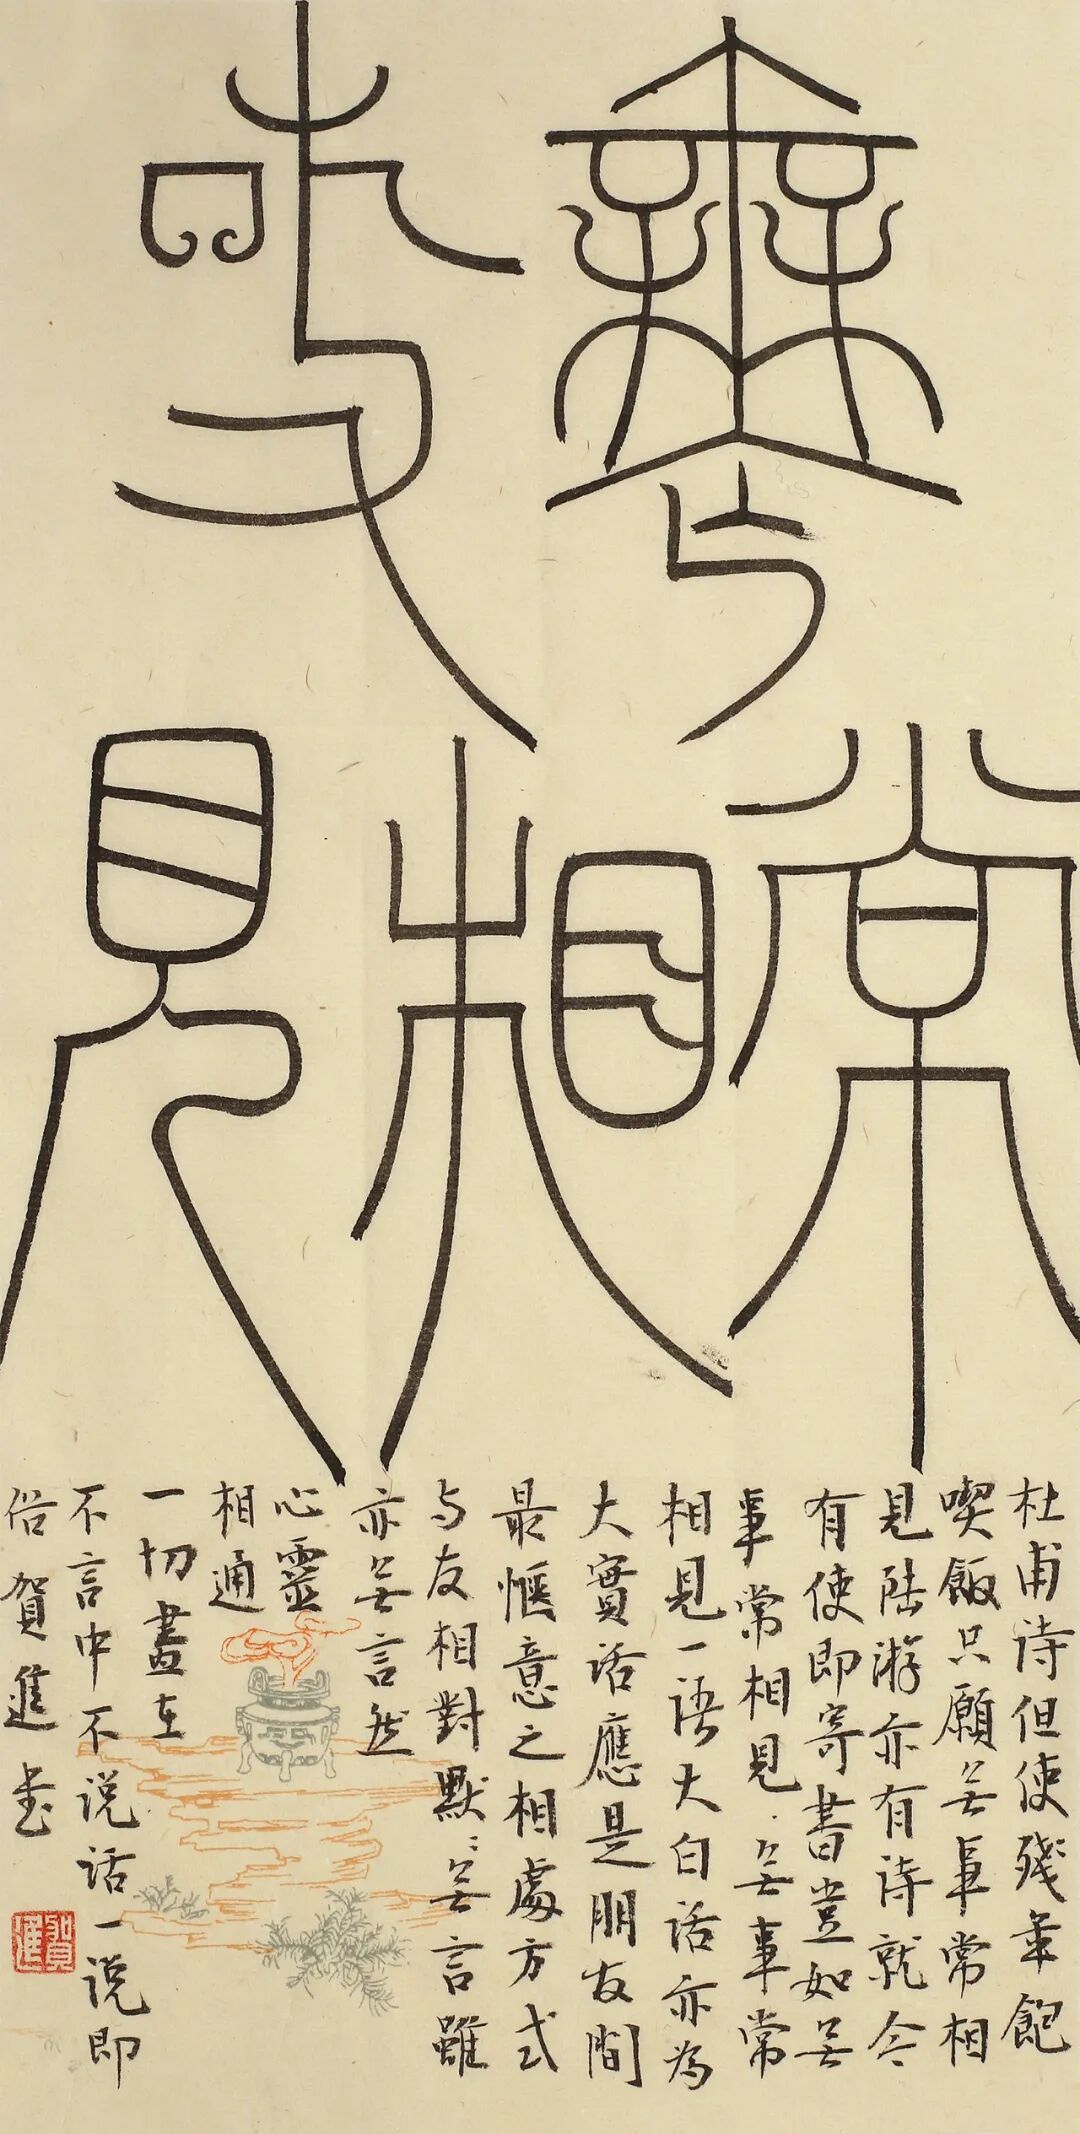 無事
常相見
杜甫诗但使残年飽
喫飯只願无事常相
見陆游亦有诗就令
有使即寄書豈如无
事常相見、无事常
相見一语大白话亦為
大實话應是朋友間
最惬意之相處方式
与友相對默〻无言雖
亦无言然
心靈
相通
一切盡在
不言中不说话一说即
俗 賀進书
賀進